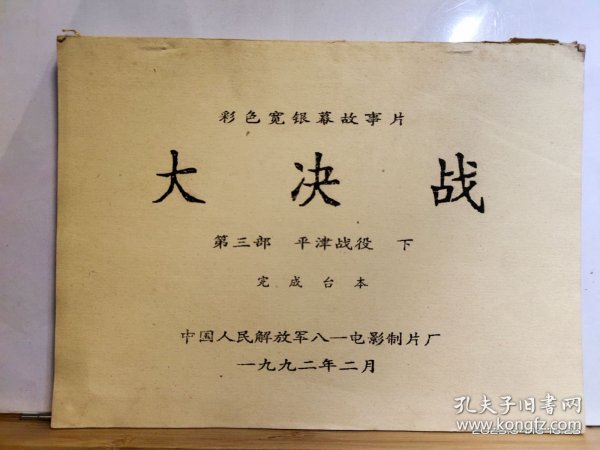 彩色宽银幕故事片
大决战
第三部 平津战役 下
完成台本
中国人民解放军八一电影制片厂
一九九二年二月
孔夫子旧书网
www.kongfz.com